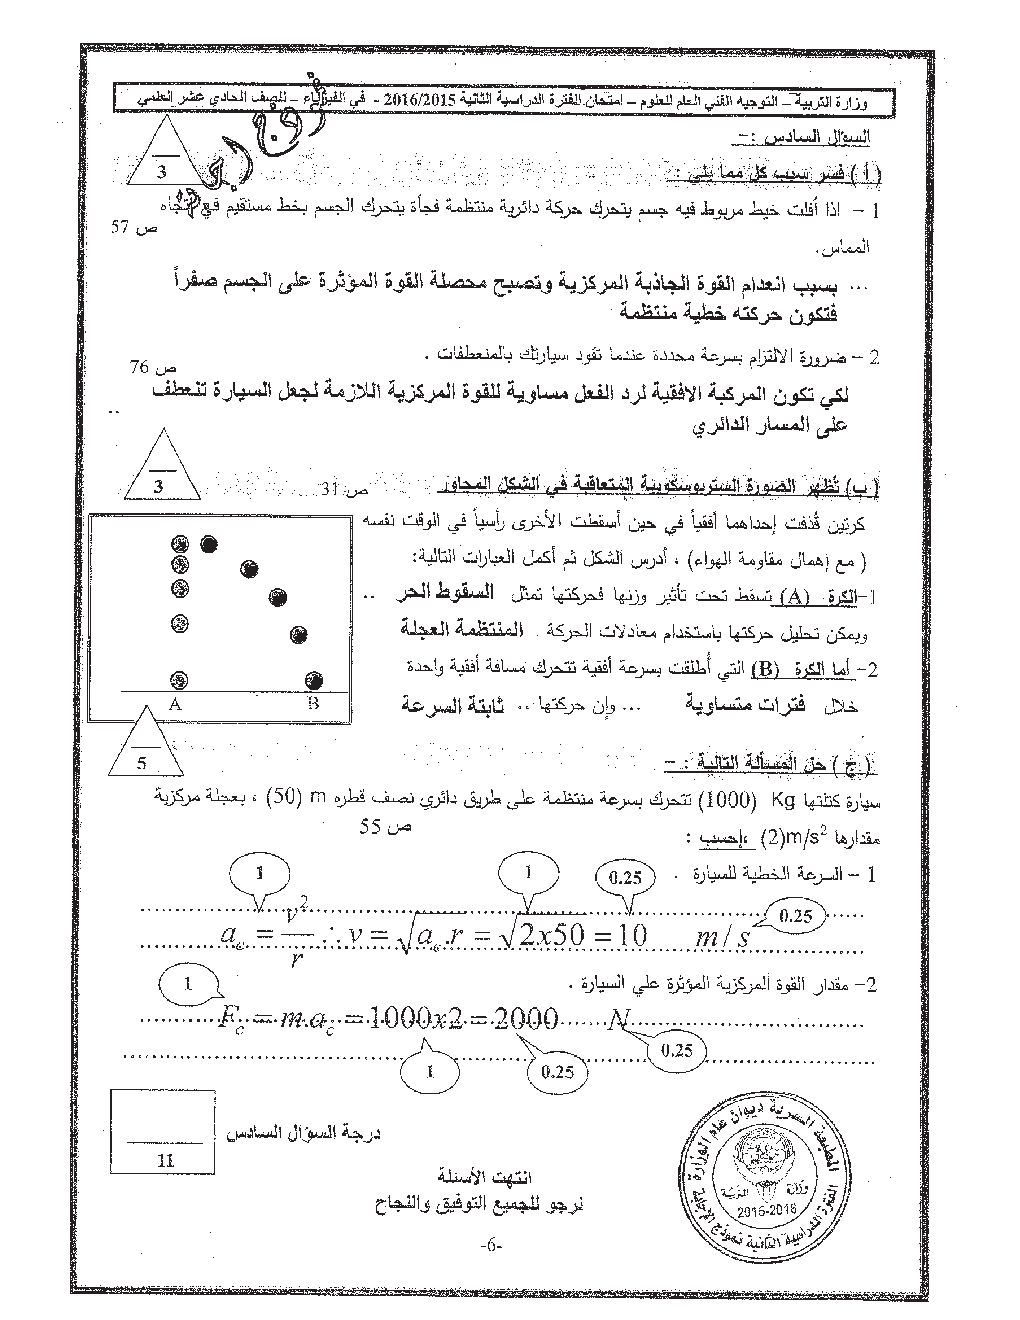 وزارة التربية – التوجيه الفني العام للعلوم – امتحان الفترة الدراسية الثانية 2016/2015 - في الفيزياء – للصف الحادي عشر العلمي
السؤال السادس :-
3
( أ ) فسر سبب كل مما يلي :
1 - اذا أفلت خيط مربوط فيه جسم يتحرك حركة دائرية منتظمة فجأة يتحرك الجسم بخط مستقيم في اتجاه
ص 57
المماس.
... بسبب انعدام القوة الجاذبة المركزية وتصبح محصلة القوة المؤثرة على الجسم صفراً
فتكون حركته خطية منتظمة
2 - ضرورة الالتزام بسرعة محددة عندما تقود سيارتك بالمنعطفات .
ص 76
لكي تكون المركبة الافقية لرد الفعل مساوية للقوة المركزية اللازمة لجعل السيارة تنعطف ..
على المسار الدائري
3
( ب) تُظهر الصورة الستربوسكوبية المتعاقبة في الشكل المجاور ص 31
كرتين قُذفت إحداهما أفقياً في حين أسقطت الأخرى رأسياً في الوقت نفسه
( مع إهمال مقاومة الهواء) ، أدرس الشكل ثم أكمل العبارات التالية:
1-الكرة (A) تسقط تحت تأثير وزنها فحركتها تمثل السقوط الحر ..
ويمكن تحليل حركتها باستخدام معادلات الحركة . المنتظمة العجلة
2- أما الكرة (B) التي أُطلقت بسرعة أفقية تتحرك مسافة أفقية واحدة
خلال فترات متساوية ... وإن حركتها .. ثابتة السرعة
A B
5
( ج ) حل المسألة التالية :-
سيارة كتلتها Kg (1000) تتحرك بسرعة منتظمة على طريق دائري نصف قطره m (50) ، بعجلة مركزية
ص 55
مقدارها (2)m/s² ،احسب :
1 - السرعة الخطية للسيارة .
1 1 0.25 0.25
a_c = v²/r ∴ v = √a_c.r = √2x50 = 10 m/s
2- مقدار القوة المركزية المؤثرة علي السيارة .
1
F_c = m.a_c = 1000x2 = 2000 N
1 0.25 0.25
درجة السؤال السادس
11
انتهت الأسئلة
نرجو للجميع التوفيق والنجاح
-6-
المطبعة السرية ديوان عام الوزارة
وزارة التربية
2015-2016
الفترة الدراسية الثانية نموذج الإجابة